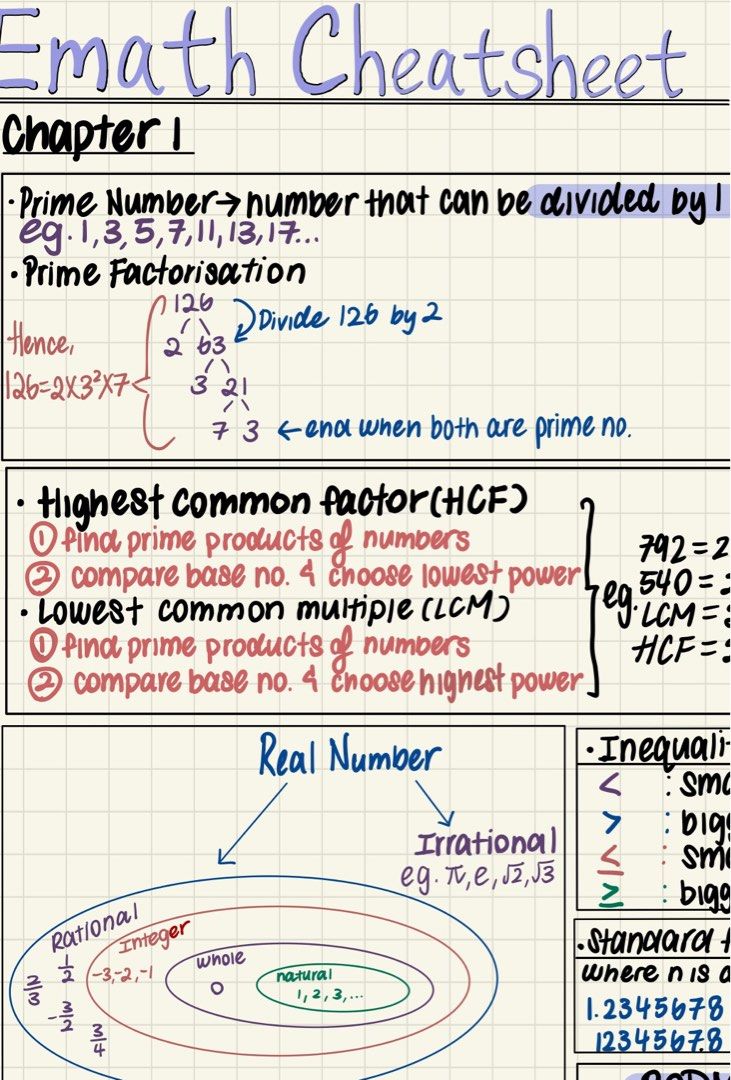 Emath Cheatsheet
Chapter 1
• Prime Number → number that can be divided by 1
eg. 1, 3, 5, 7, 11, 13, 17...
• Prime Factorisation
126
Divide 126 by 2
2 63
Hence,
126=2×3²×7
3 21
7 3 ← end when both are prime no.
• Highest common factor (HCF)
① find prime products of numbers
② compare base no. & choose lowest power
• Lowest common multiple (LCM)
① find prime products of numbers
② compare base no. & choose highest power
eg.
792 = 2
540 =
LCM =
HCF =
Real Number
Irrational
eg. π, e, √2, √3
Rational
Integer
whole
natural
1/2
-3, -2, -1
0
1, 2, 3, ...
2/3
-3/2
3/4
• Inequali
< : sma
> : bigg
≤ : sma
≥ : bigg
• Standard f
where n is a
1.2345678
12345678